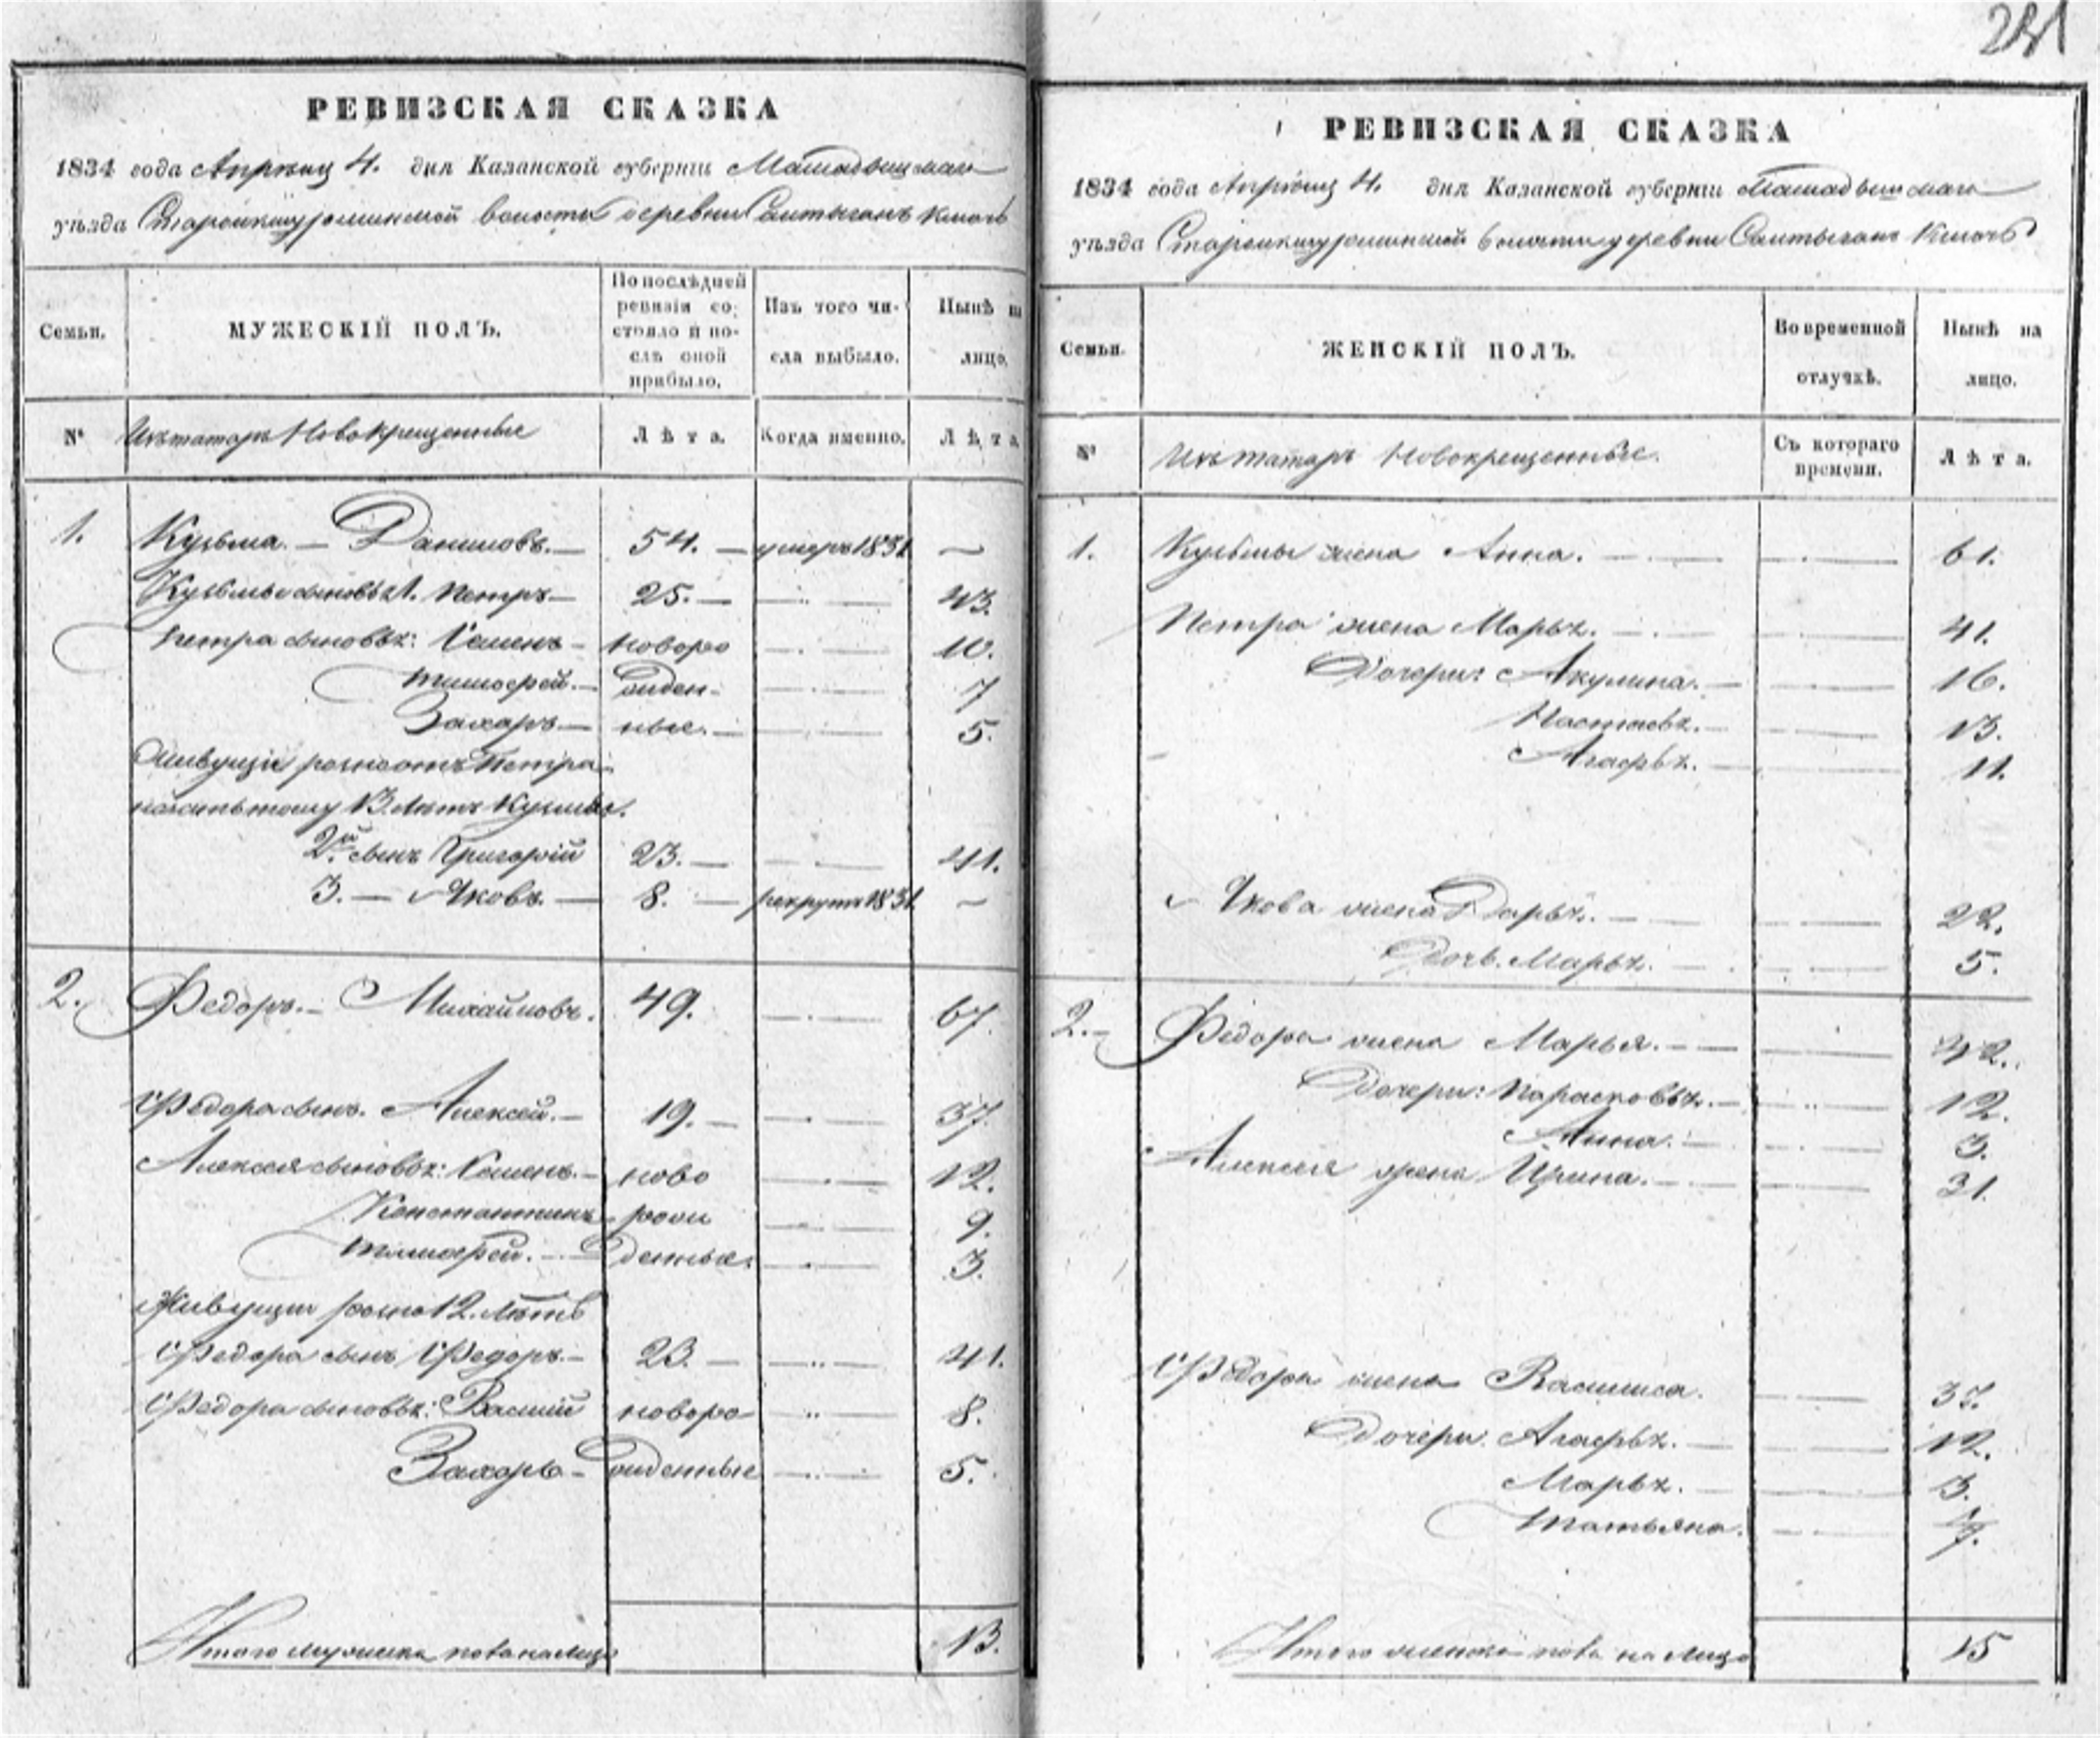 241
РЕВИЗСКАЯ СКАЗКА
1834 года Апрѣлц 4. дня Казанской губерніи Мамадышскаго
уѣзда волости деревни Салтыганъ Ключь
Семьи.
МУЖЕСКІЙ ПОЛЪ.
По послѣдней ревизіи состояло и послѣ оной прибыло.
Изъ того числа выбыло.
Нынѣ на лицо.
№
Изъ татаръ Новокрещенные
Лѣта.
Когда именно.
Лѣта
1. Кузьма. — Даниловъ. — 54. — умеръ 1831 —
Кузьмы сыновья 1. Петръ — 25. — 43.
Петра сыновьѣ: Семенъ — новоро 10.
Тимофей. — жден- 7
Захаръ — ные. — 5.
Живущіе розно отъ Петра
тому 13. лѣтъ Кузьмы.
2й сынъ Григорій 23. — 41.
3. — Яковъ. — 8. — рекрутъ 1831 —
2. Федоръ. — Михайловъ. 49. 67.
Федора сынъ. Алексей. — 19. — 37.
Алексея сыновьѣ: Семенъ. — ново 12.
Константинъ рож 9.
Тимофей. — денные. 3.
Живущіи розно 12. лѣтъ
Федора сынъ Федоръ — 23. — 41.
Федора сыновьѣ: Василій новоро 8.
Захаръ — жденные 5.
Итого мужеска пола на лицо 13.
РЕВИЗСКАЯ СКАЗКА
1834 года Апрѣлц 4. дня Казанской губерніи Мамадышскаго
уѣзда волости деревни Салтыганъ Ключь
Семьи.
ЖЕНСКІЙ ПОЛЪ.
Во временной отлучкѣ.
Нынѣ на лицо.
№
Изъ татаръ Новокрещенные.
Съ котораго времени.
Лѣта.
1. Кузьмы жена Анна. — 61.
Петра жена Марьѣ. — 41.
Дочери: Акулина. — 16.
Настасьѣ. — 13.
Агафьѣ. — 11.
Якова жена Дарьѣ. — 22.
Дочь. Марьѣ. — 5.
2. — Федора жена Марья. — 42.
Дочери: Парасковьѣ. — 12.
Анна. — 3.
Алексея жена Ирина. — 31.
Федора жена Василиса. 37.
Дочери. Агафьѣ. — 12.
Марьѣ. — 3.
Татьяна.
Итого женска пола на лицо 15